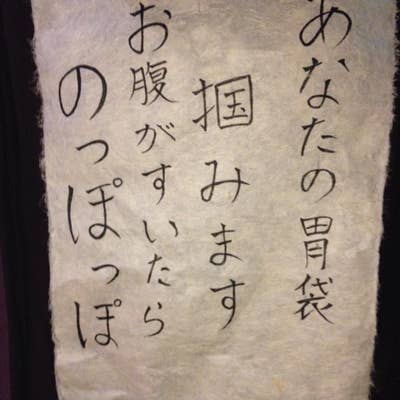 あなたの胃袋
掴みます
お腹がすいたら
のっぽっぽ